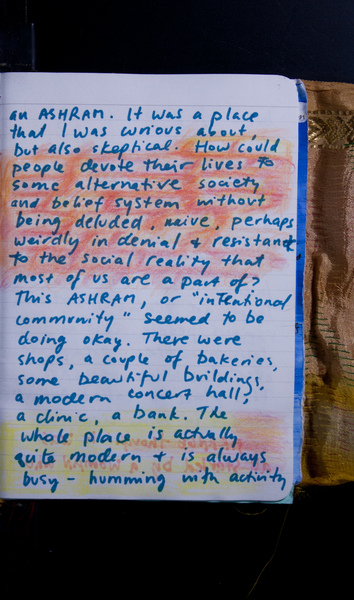 an ASHRAM. It was a place
that I was curious about,
but also skeptical. How could
people devote their lives to
some alternative society
and belief system without
being deluded, naive, perhaps
weirdly in denial & resistant
to the social reality that
most of us are a part of?
This ASHRAM, or "intentional
community" seemed to be
doing okay. There were
shops, a couple of bakeries,
some beautiful buildings,
a modern concert hall,
a clinic, a bank. The
whole place is actually
quite modern + is always
busy - humming with activity